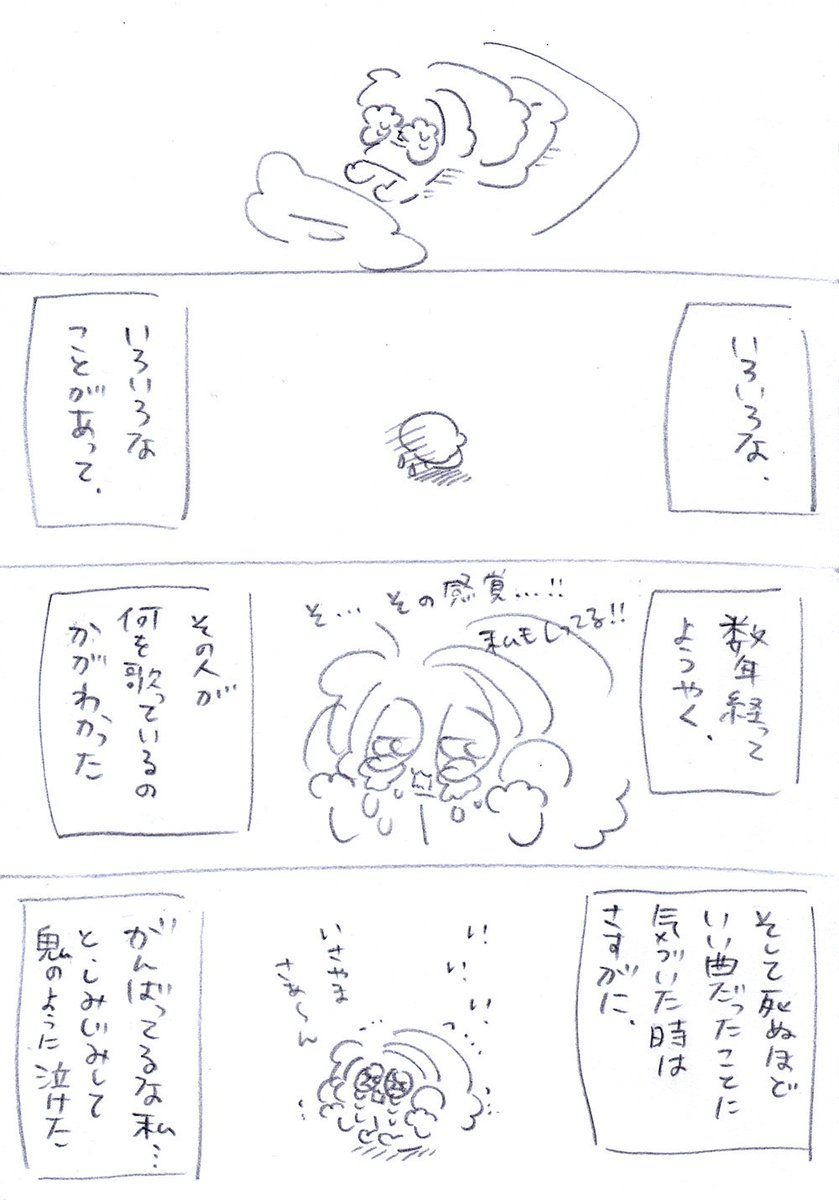 いろいろな、
いろいろな
ことがあって、
数年経って
ようやく、
そ… その感覚…!!
私もしってる!!
その人が
何を歌っているの
かがわかった
そして死ぬほど
いい曲だったことに
気づいた時は
さすがに、
い!
い!
い!
いさやま
さぁ〜ん
がんばってるな私…
と、しみじみして
鬼のように泣けた